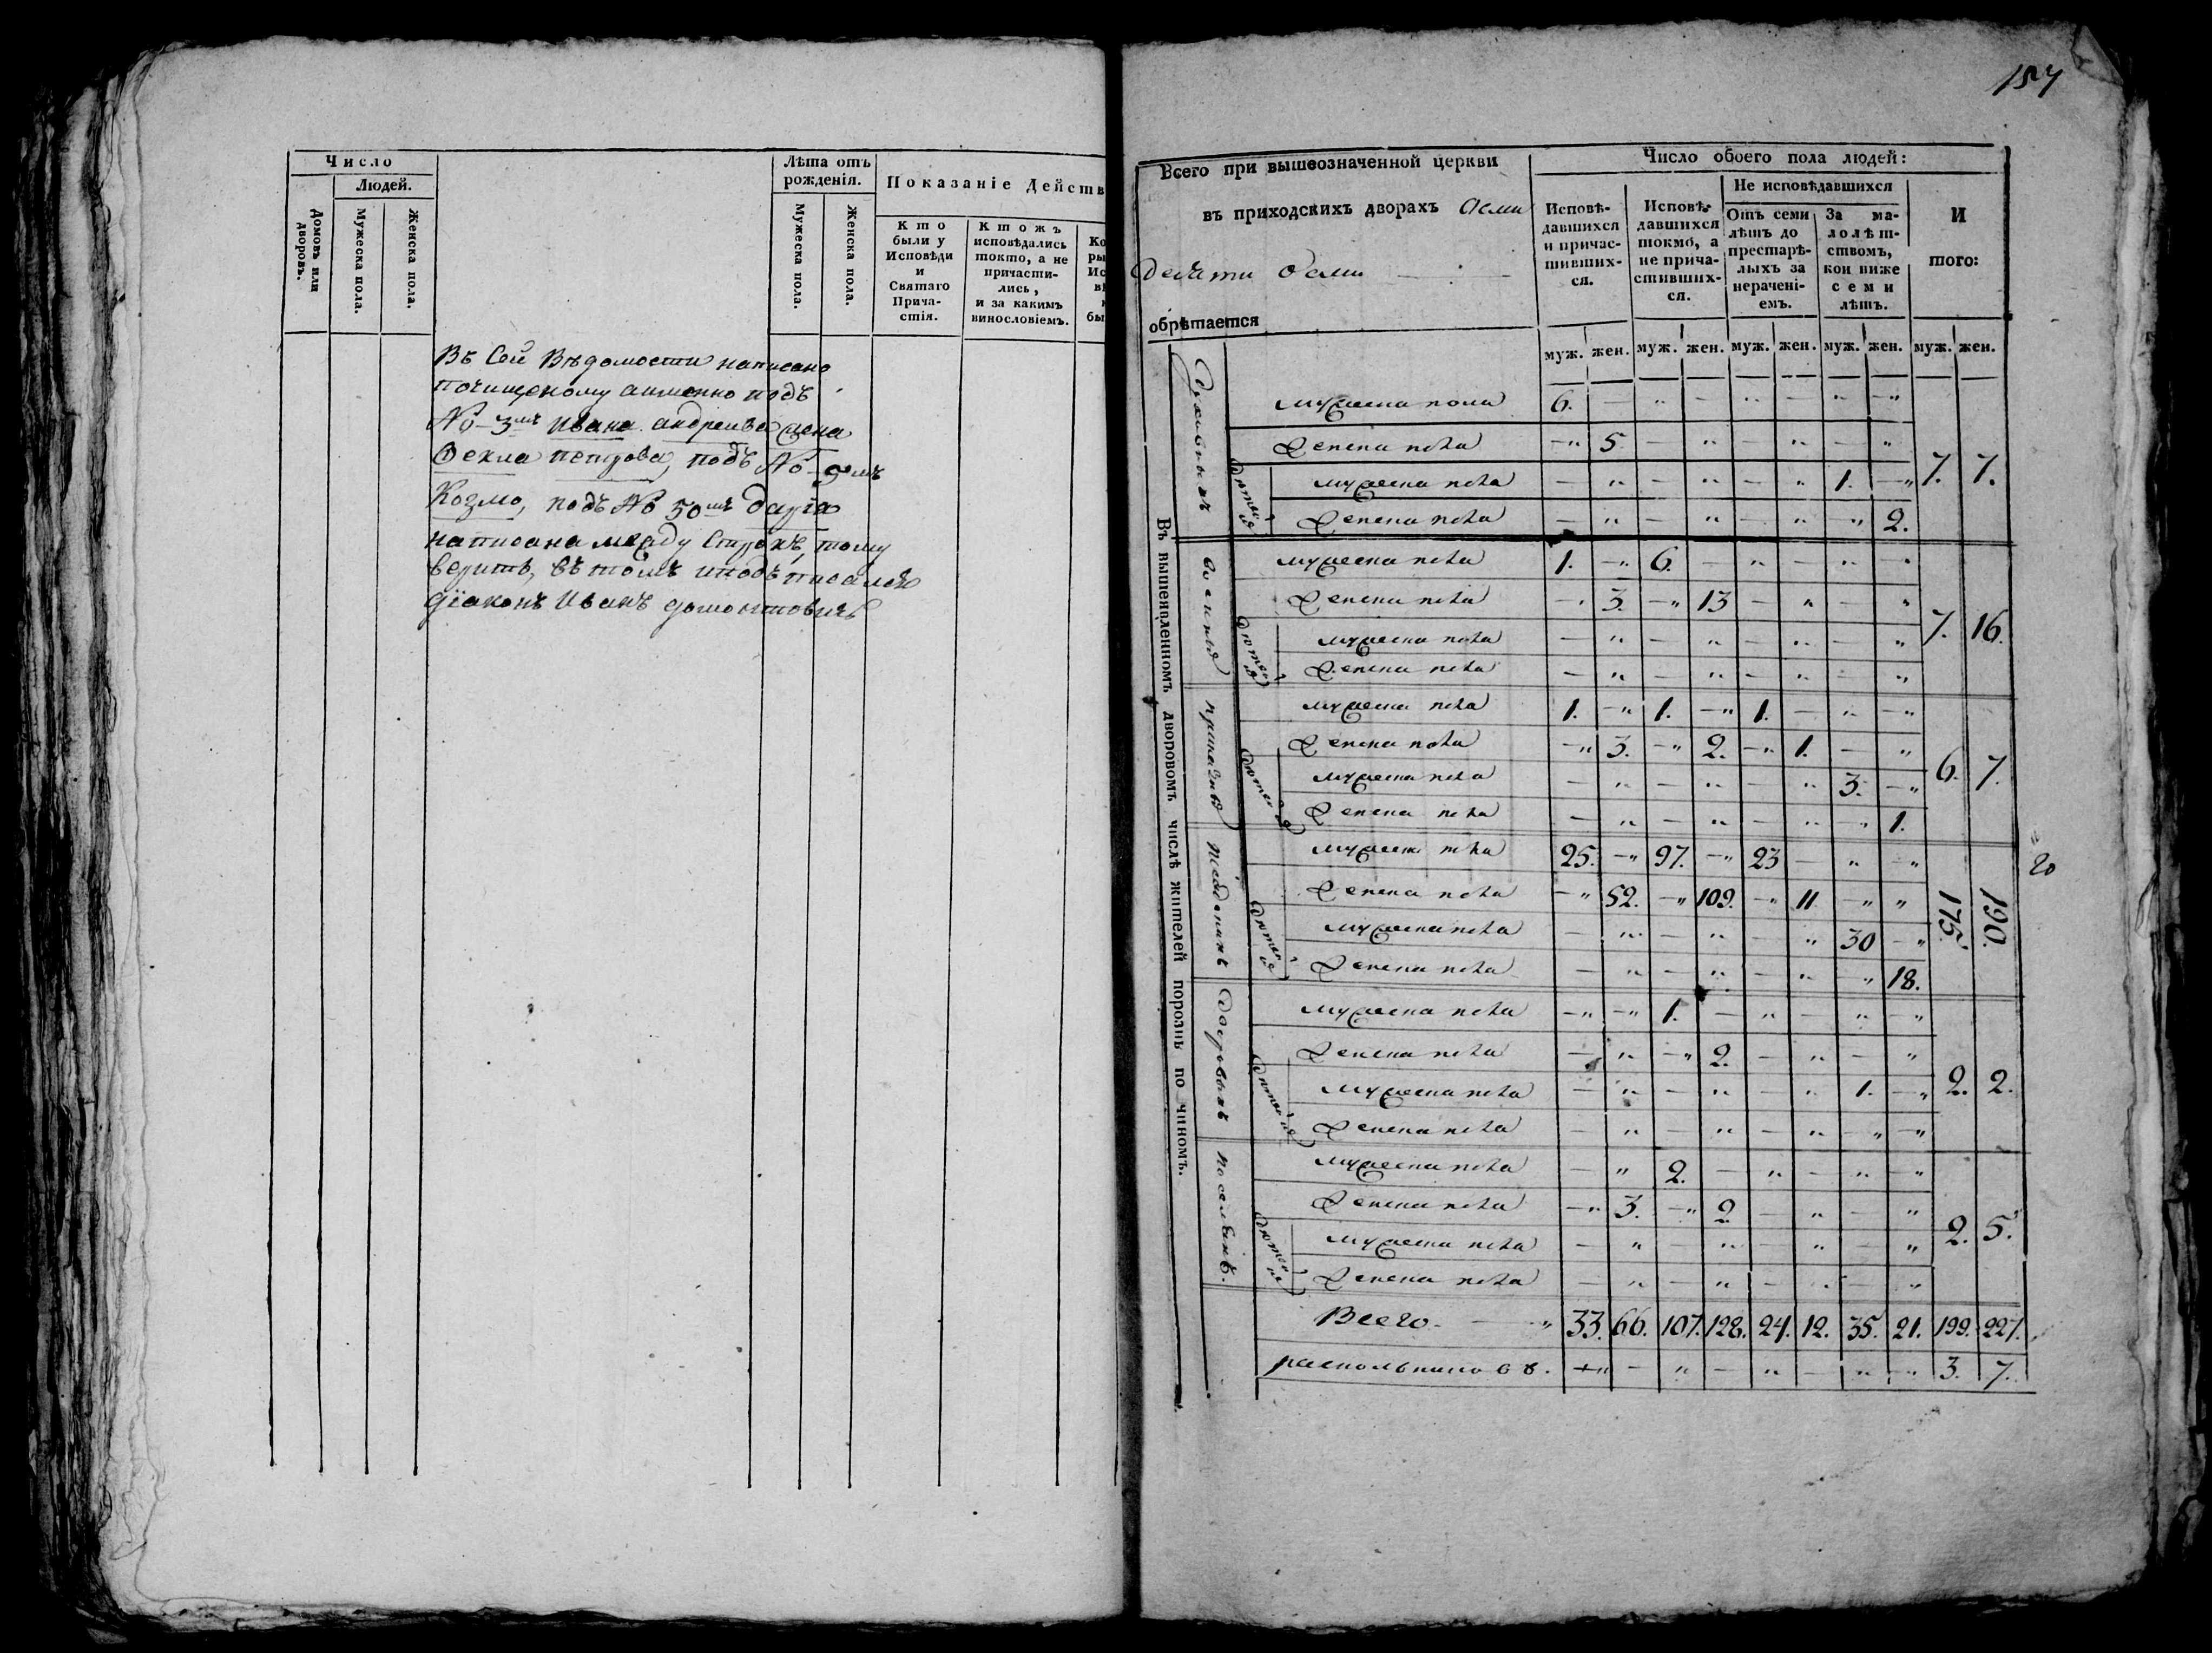 Число
Людей.
Домовъ или дворовъ.
Мужеска пола.
Женска пола.
Лѣта отъ рожденія.
Мужеска пола.
Женска пола.
Показаніе Действ
Кто были у Исповѣди и Святаго Причастія.
Ктожъ исповѣдались токто, а не причастились, и за какимъ винословіемъ.
Въ Сей Вѣдомости написано
почищеному аименно подъ
№ 3мъ Ивана андреива жена
Ѳекла петрова, подъ №
Козмо, подъ № 50мъ дарїа
написана между Строкъ, тому
верить, въ томъ иподъписался
дїаконъ Иванъ домонтовичь
157
Всего при вышеозначенной церкви
въ приходскихъ дворахъ Осми
десяти Осми
обрѣтается
Число обоего пола людей:
Исповѣдавшихся и причастившихся.
Исповѣдавшихся токмо, а не причастившихся.
Не исповѣдавшихся
Отъ семи лѣтъ до престарѣлыхъ за нерачені-емъ.
За малолѣтствомъ, кои ниже семи лѣтъ.
И того:
муж. жен. муж. жен. муж. жен. муж. жен. муж. жен.
Въ вышеявленномъ дворовомъ числѣ жителей порознь по чиномъ.
Духовныхъ
мужеска пола 6. — „ — „ — „ — „
женска пола — „ 5 — „ — „ — „
Дѣтей
мужеска пола — „ — „ — „ 1. — „ 7. 7.
женска пола — „ — „ — „ — „ 2.
военныхъ
мужеска пола 1. — „ 6. — „ — „ — „
женска пола — „ 3. — „ 13 — „ — „
Дѣтей
мужеска пола — „ — „ — „ — „ 7. 16.
женска пола — „ — „ — „ — „
приказныхъ
мужеска пола 1. — „ 1. — „ 1. — „ — „
женска пола — „ 3. — „ 2. — „ 1. — „
Дѣтей
мужеска пола — „ — „ — „ 3. — „ 6. 7.
женска пола — „ — „ — „ — „ 1.
посадскихъ
мужеска пола 25. — „ 97. — „ 23 — „ — „
женска пола — „ 52. — „ 109. — „ 11 — „ „
Дѣтей
мужеска пола — „ — „ — „ 30 — „ 175. 190.
женска пола — „ — „ — „ — „ 18.
20
Дворовыхъ
мужеска пола — „ — „ 1. — „ — „ — „
женска пола — „ — „ 2. — „ — „
Дѣтей
мужеска пола — „ — „ — „ 1. — „ 2. 2.
женска пола — „ — „ — „ — „ — „
поселянъ.
мужеска пола — „ 2. — „ — „ „
женска пола — „ 3. — „ 2. — „ — „
Дѣтей
мужеска пола — „ — „ — „ — „ 2. 5.
женска пола — „ — „ — „ — „
Всего. — „ 33. 66. 107. 128. 24. 12. 35. 21. 199. 227.
раскольниковъ. — „ — „ — „ — „ — „ 3. 7.